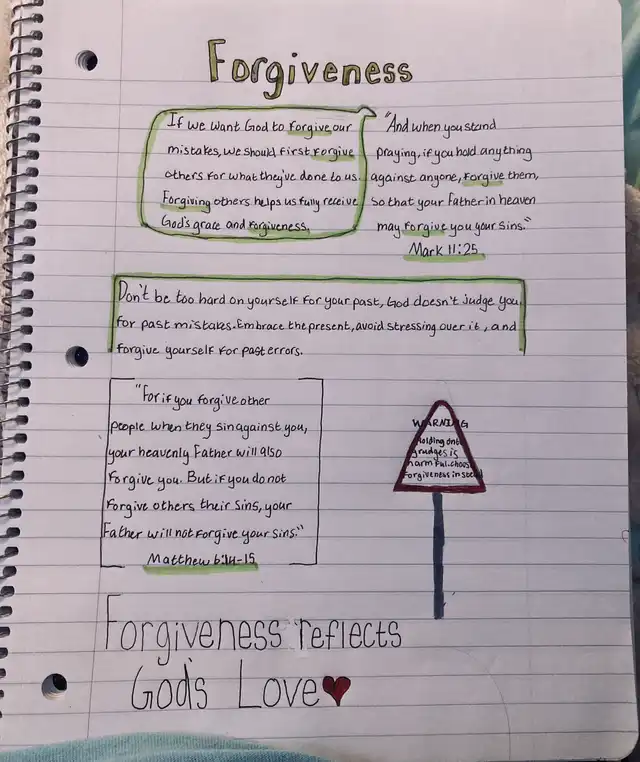 Forgiveness
If we want God to Forgive our
mistakes, we should first Forgive
others for what they've done to us.
Forgiving others helps us fully receive
God's grace and forgiveness.
"And when you stand
praying, if you hold anything
against anyone, Forgive them,
so that your Father in heaven
may forgive you your sins."
Mark 11:25
Don't be too hard on yourself for your past, God doesn't judge you
for past mistakes. Embrace the present, avoid stressing over it, and
forgive yourself for past errors.
"For if you forgive other
people when they sin against you,
your heavenly Father will also
forgive you. But if you do not
forgive others their sins, your
Father will not forgive your sins."
Matthew 6:14-15
WARNING
Holding onto
grudges is
harmful. choose
forgiveness
Forgiveness reflects
God's Love